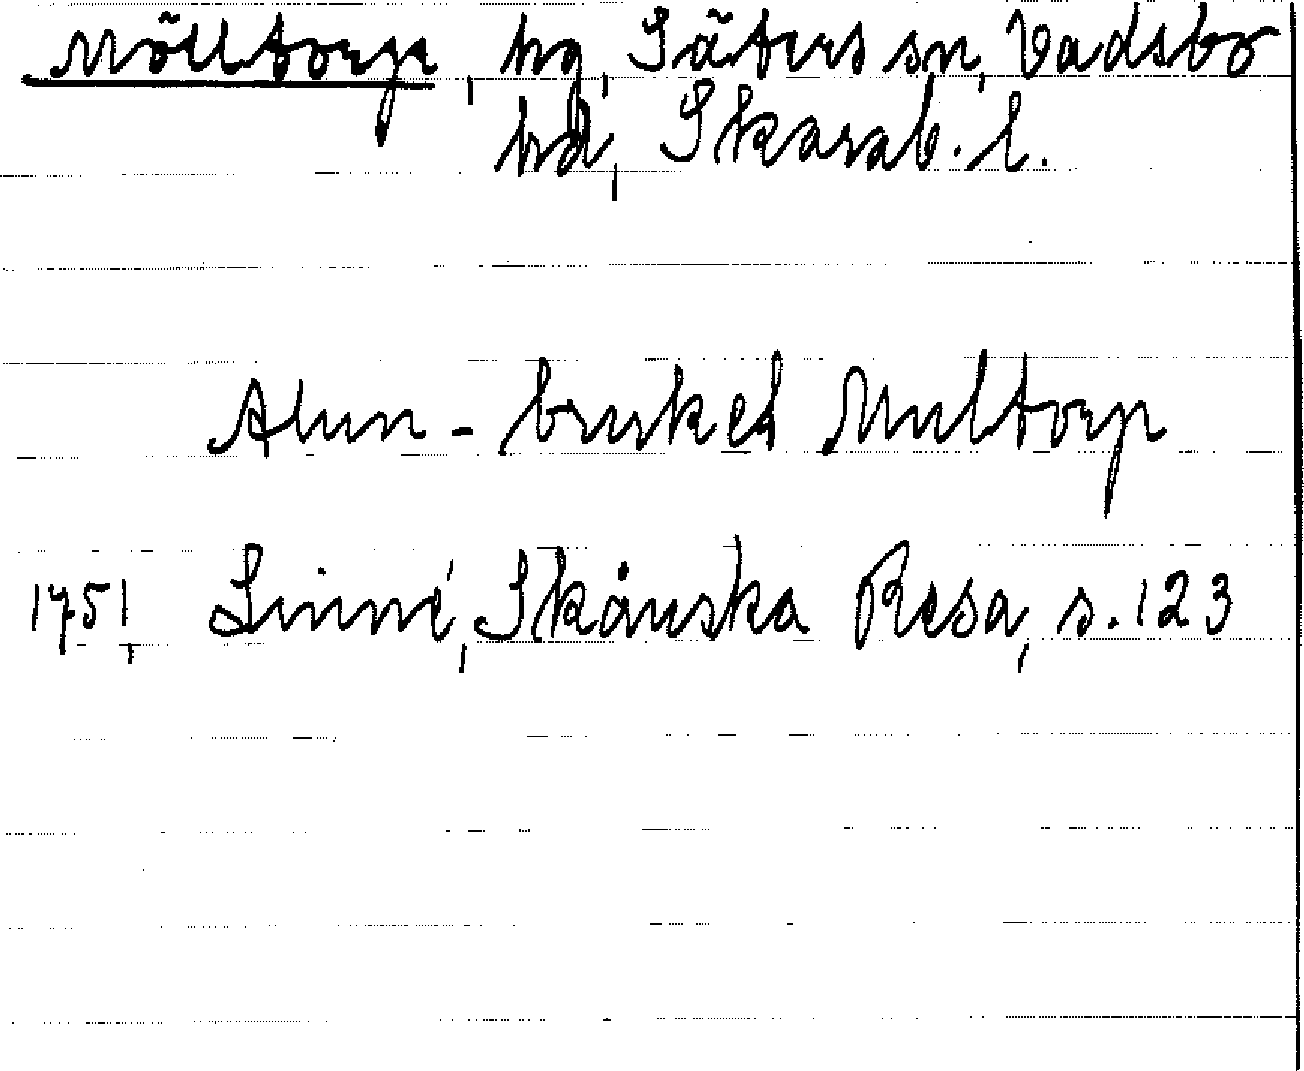 Mölltorp, hg, Säters sn, Vadsbo
hd, Skarab. l.
Alun-bruket Multorp
1751, Linné, Skånska Resa, s. 123